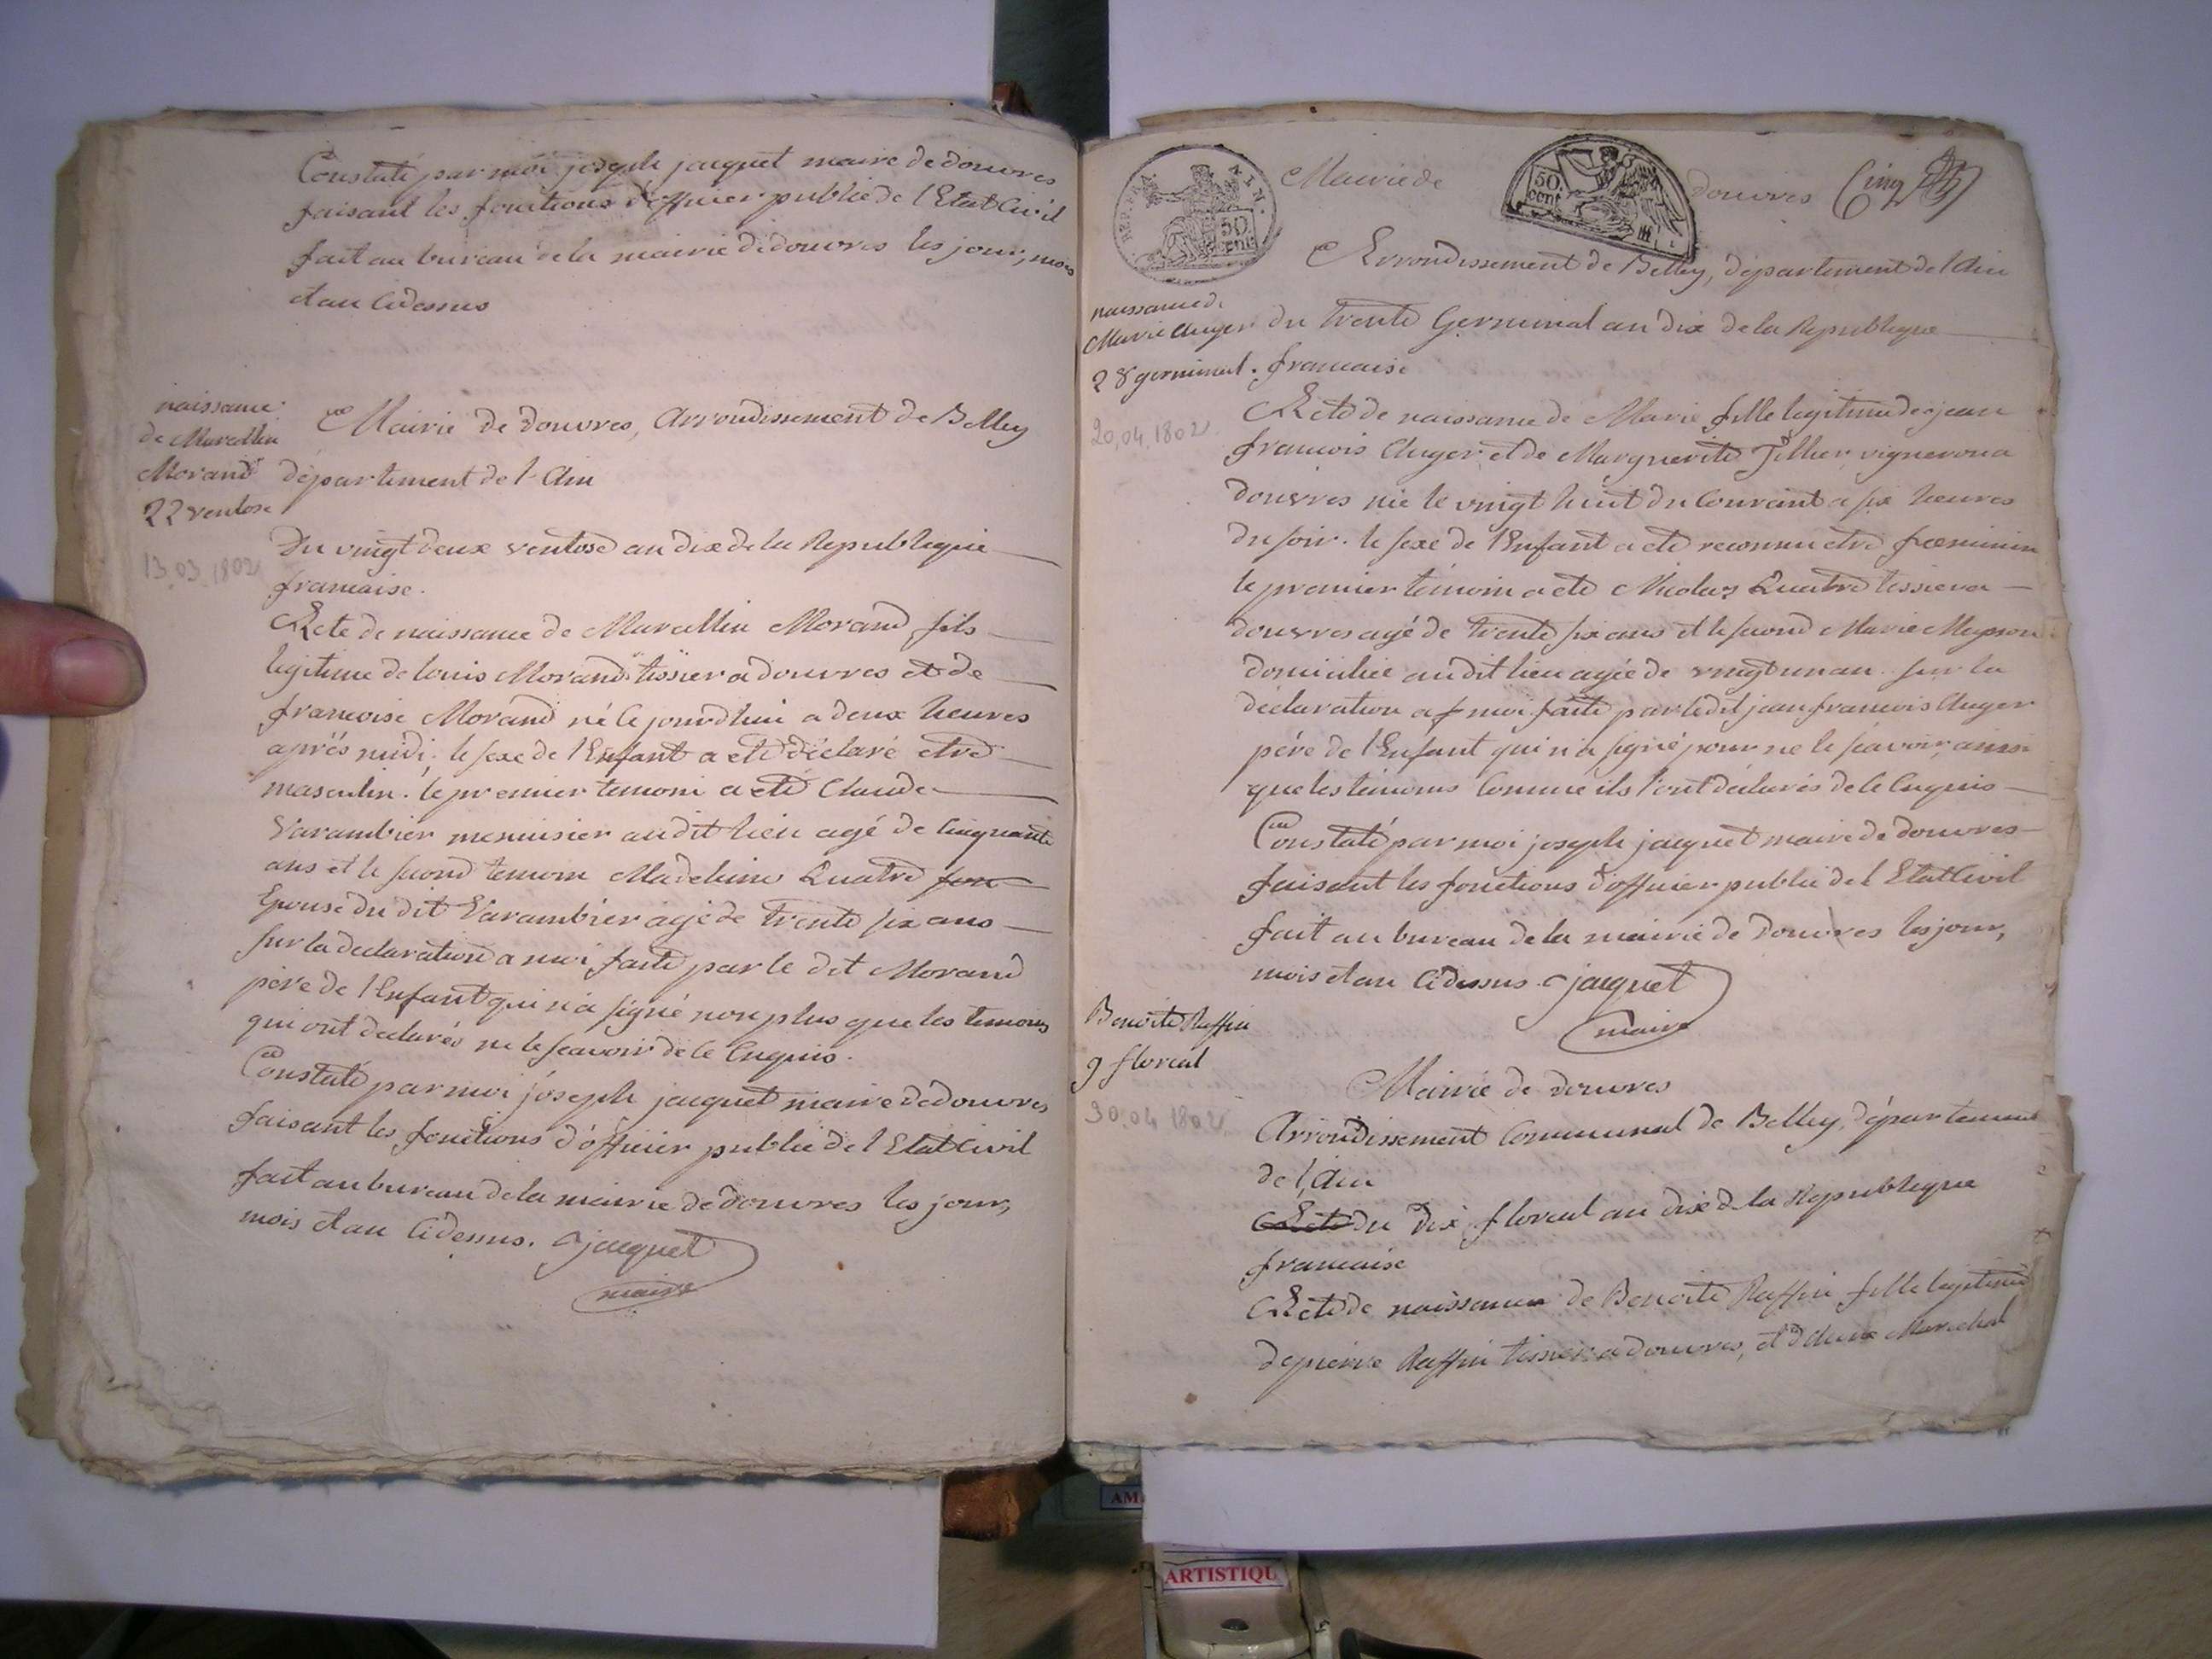 Constaté par moi joseph jacquet maire de douvres
faisant les fonctions d'officier public de l'Etat Civil
fait au bureau de la mairie de douvres les jour, mois
et an cidessus
naissance
de Marcellin
Morand
22 ventose
13.03.1802
Mairie de douvres, Arrondissement de Belley
département de l'Ain
Du vingt deux ventose an dix de la Republique
francaise.
Acte de naissance de Marcellin Morand fils
legitime de louis Morand tissier a douvres et de
francoise Morand né ce jourdhui a deux heures
après midi; le sexe de l'Enfant a eté déclaré etre
masculin. le premier temoin a eté Claude
Varambier menuisier audit lieu agé de cinquante
ans et le second temoin Madelaine Quatre
Epouse du dit Varambier agé de trente six ans
sur la declaration a moi faite par le dit Morand
père de l'Enfant qui n'a signé non plus que les temoins
qui ont declarés ne le scavoir de ce Enquis.
Constaté par moi joseph jacquet maire de douvres
faisant les fonctions d'officier public de l'Etat Civil
fait au bureau de la mairie de douvres les jour,
mois et an cidessus. jacquet
maire
REP. FRA. AIN. 50 cent.
Mairie de
50. cent.
douvres Cinq
Arrondissement de Belley, département de l'Ain
naissance de
Marie Auger
28 germinal.
20.04.1802
du trente Germinal an dix de la Republique
francaise
Acte de naissance de Marie fille legitime de jean
francois Auger et de Marguerite Tillier vigneron a
douvres née le vingt huit du Courant a six heures
du soir. le sexe de l'Enfant a eté reconnu etre foeminin
le premier témoin a eté Nicolas Quatre tissier a
douvres agé de trente six ans et le second Marie
domiciliée audit lieu agée de vingt un an. sur la
déclaration a moi faite par ledit jean francois Auger
père de l'Enfant qui n'a signé pour ne le scavoir, ainsi
que les témoins Comme ils l'ont déclarés de ce Enquis
Constaté par moi joseph jacquet maire de douvres
faisant les fonctions d'officier public de l'Etat Civil
fait au bureau de la mairie de douvres les jour,
mois et an cidessus. jacquet
maire
Benoite Ruffin
9 floreal
30.04 1802
Mairie de douvres
Arrondissement Communal de Belley, département
de l'Ain
Acte du dix floreal an dix de la Republique
francaise
Acte de naissance de Benoite Ruffin fille legitime
de pierre Ruffin tissier a douvres, et d'Anne Marechal
ARTISTIQU